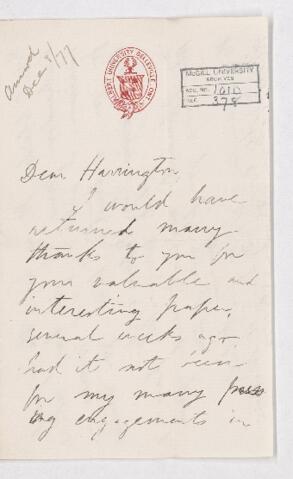 Answd
Dec 8/77
ALBERT UNIVERSITY BELLEVILLE ONT
McGILL UNIVERSITY
ARCHIVES
ACC. NO. 1010
REF. 378
Dear Harrington
I would have
returned many
thanks to you for
your valuable and
interesting paper,
several weeks ago
had it not been
for my many press
ing engagements in